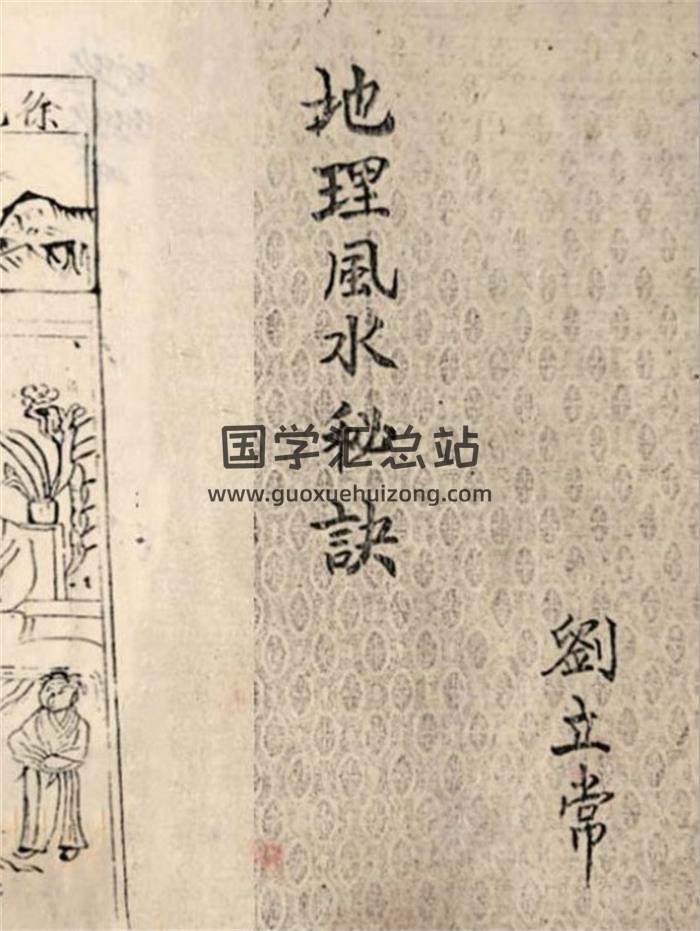 地理風水秘訣
劉立常
徐
国学汇总站
www.guoxuehuizong.com